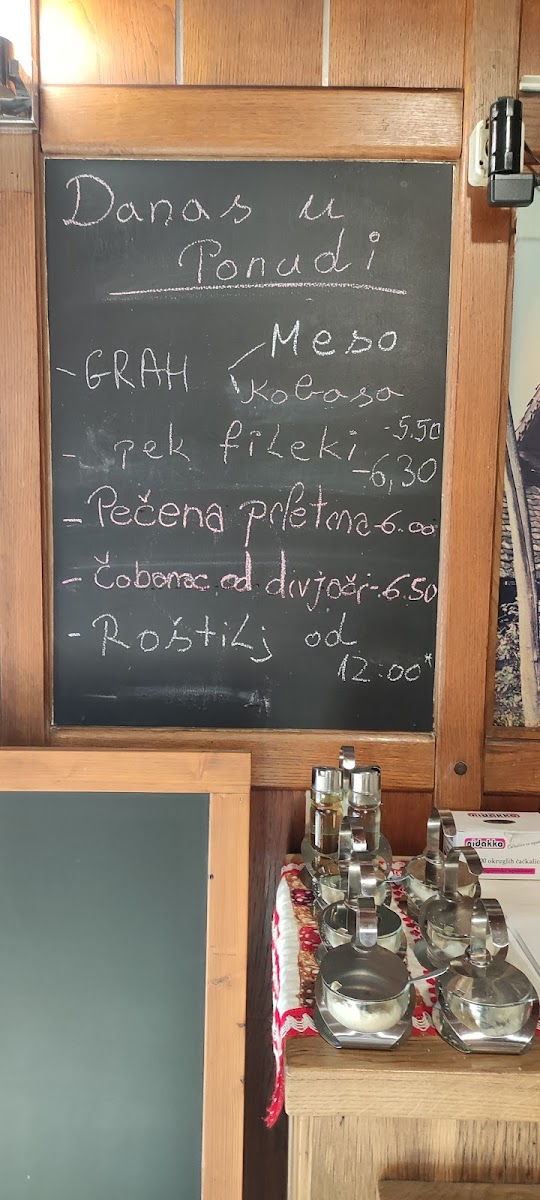 Danas u
Ponudi
- GRAH Meso
Kobasa
-5.50
- pek fileki
-6,30
- Pečena prletina-6.00
- Čobanac od divjači-6.50
- Roštilj od
12:00*
nidakko
nidakko
okruglih čačkalic